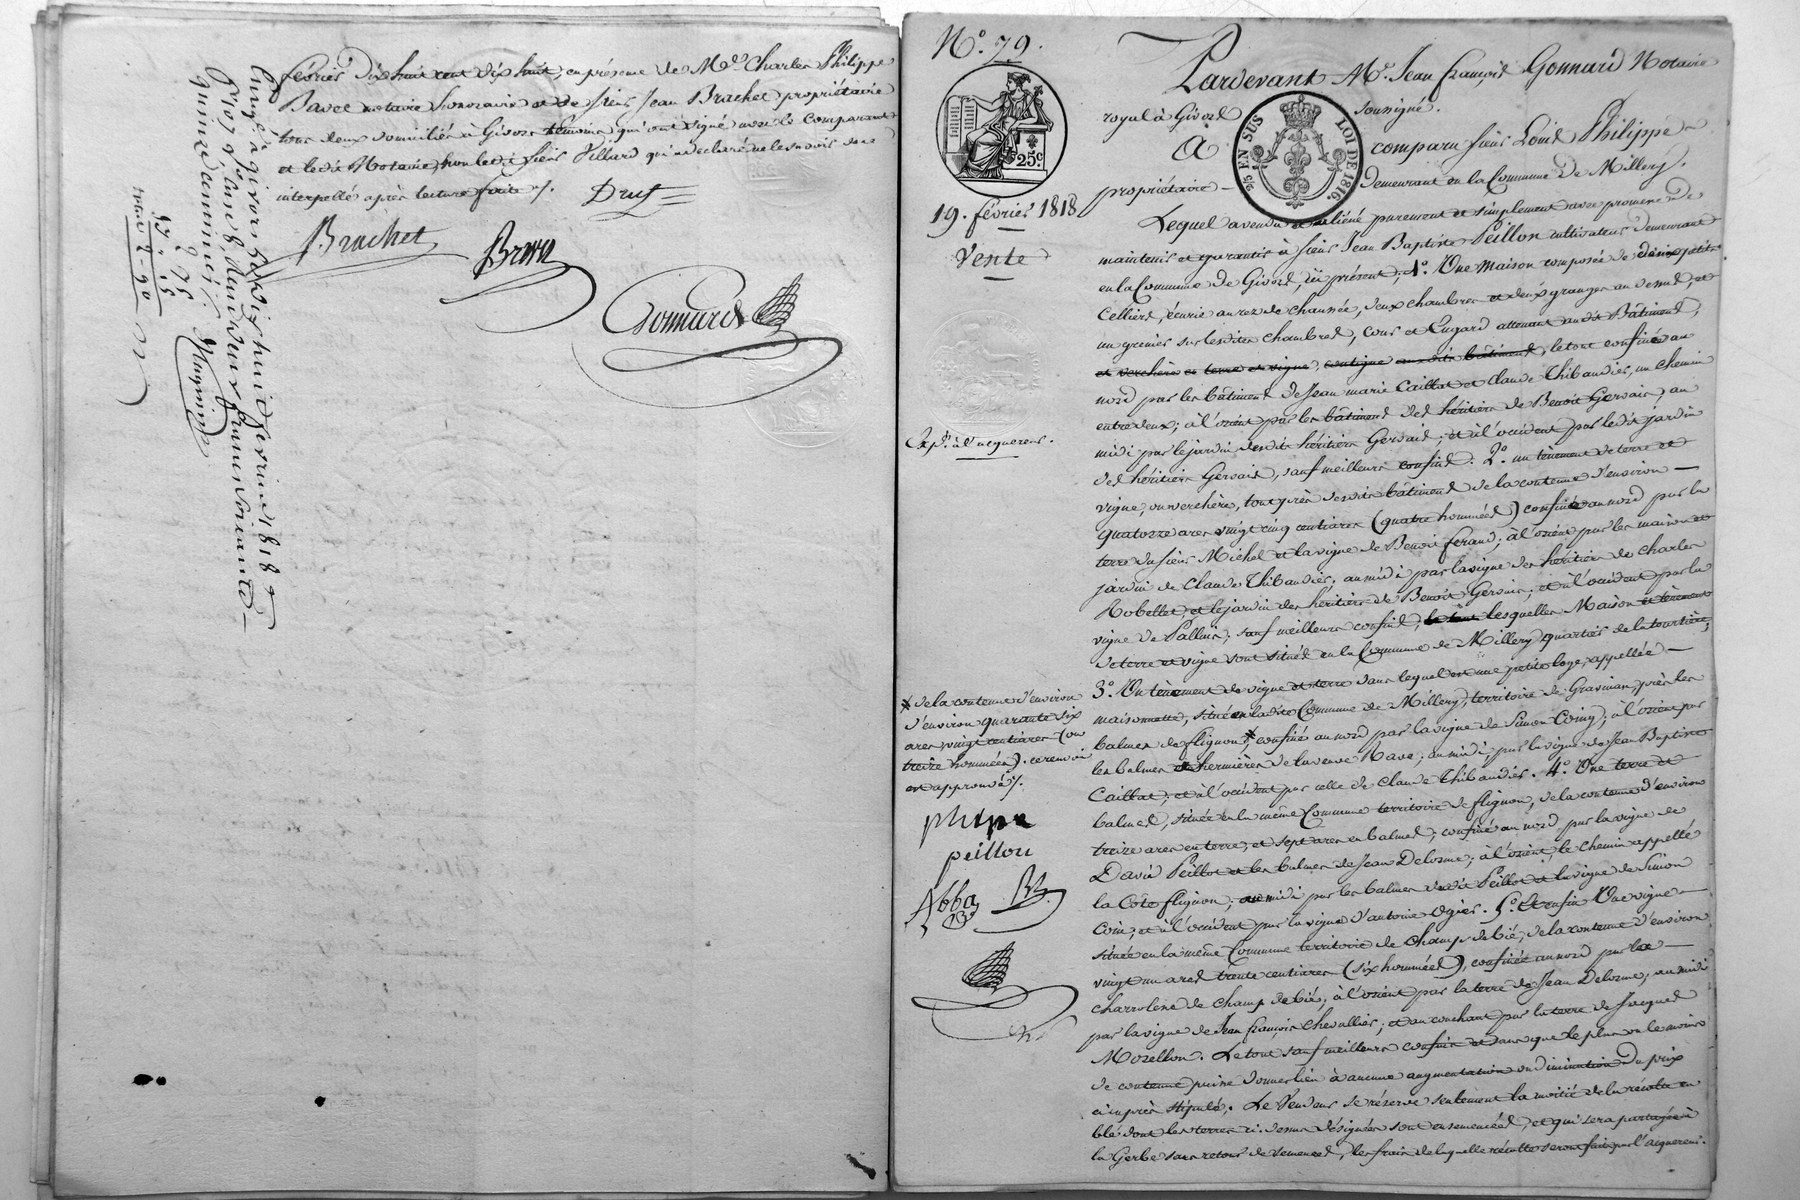 février dix huit cent dix huit, en présence de Me. Charles Philippe
Bavet notaire honoraire et de sieur Jean Brachet propriétaire
tous deux domiciliés à Givors témoins qui ont signé avec le comparant
et ledit Notaire, non ledit sieur Villard qui a déclaré ne le savoir de ce
interpellé après lecture faite ./.
Drut
Brachet
Gonnard
Enregé à givors le dix huit février 1818
quinze centimes
N°. 79.
25c
19. février 1818
Vente
Expon. à l'acquereur.
Pardevant Me. Jean françois Gonnard Notaire
royal à Givors soussigné.
EN SUS LOI DE 1816.
A comparu sieur Louis Philippe
propriétaire - Demeurant en la Commune de Millery.
Lequel a vendu et aliéné purement et simplement avec promesse de
maintenir et garantir à sieur Jean Baptiste Peillon cultivateur demeurant
en la Commune de Givors, ici présent; 1°. Une maison composée de deux petits
Celliers, écurie au rez de chaussée, deux chambres et deux granges au dessus, et
un grenier sur lesdites chambres, cour et Angard attenant audit Bâtiment,
et verchère en terre et vigne, contigue audit bâtiment, le tout confiné au
nord par les bâtiments de Jean marie Caillat et Claude Thibaudier, un chemin
entre deux; à l'orient par les bâtiments des héritiers de Benoit Gervais; au
midi par le jardin desdits héritiers Gervais; et à l'occident par ledit jardin
des héritiers Gervais, sauf meilleurs confins. 2°. un tènement de terre et
vigne, ou verchère, tout près desdits bâtiments de la contenue d'environ
quatorze ares vingt cinq centiares (quatre hommées) confiné au nord par la
terre du sieur Michel et la vigne de Benoit feraud; à l'orient par les maison et
jardin de Claude Thibaudier; au midi par la vigne des héritiers de Charles
Robellet et le jardin des héritiers de Benoit Gervais; et à l'occident par la
vigne de Pallin; sauf meilleurs confins, le tout lesquelles Maison et tènement
de terre et vigne sont situés en la Commune de Millery quartier de la tourtière;
3°. Un tènement de vigne et terre dans lequel est une petite loge, appellée
maisonnette, situé en ladite Commune de Millery, territoire de Gravinan, près les
balmes de flignon, x confiné au nord par la vigne de Simon Coing; à l'orient par
les balmes et hermières de la veuve Rave; au midi par la vigne de Jean Baptiste
Caillat; et à l'occident par celle de Claude Thibaudier. 4°. Une terre et
balmes, située en la même Commune territoire de flignon, de la contenue d'environ
treize ares en terre, et sept ares en balmes; confiné au nord par la vigne de
David Peillot et les balmes de Jean Delorme; à l'orient, le chemin appellé
la Cote flignon; au midi par les balmes dudit Peillot et la vigne de Simon
Coin; et à l'occident par la vigne d'antoine Ogier. 5°. Et enfin Une vigne
située en la même Commune territoire de champ de bié, de la contenue d'environ
vingt un ares trente centiares (six hommées), confinée au nord par la
charrolene de champ de bié; à l'orient par la terre de Jean Delorme; au midi
par la vigne de Jean françois Chevallier; et au couchant par la terre de Jacques
Morellon. Le tout sauf meilleurs confins et sans que le plus ou le moins
de contenue puisse donner lieu à aucune augmentation ou diminution du prix
ci après stipulé. Le Vendeur se réserve seulement la moitié de la récolte en
blé dont les terres ci-dessus désignées sont ensemencées, et qui sera partagée à
la Gerbe sans retour de semences, les frais de laquelle récolte seront faits par l'acquereur.
x de la contenue d'environ
d'environ quarante six
ares vingt centiares (ou
treize hommées). ce renvoi
est approuvé ./.
philipe
peillon
Abba